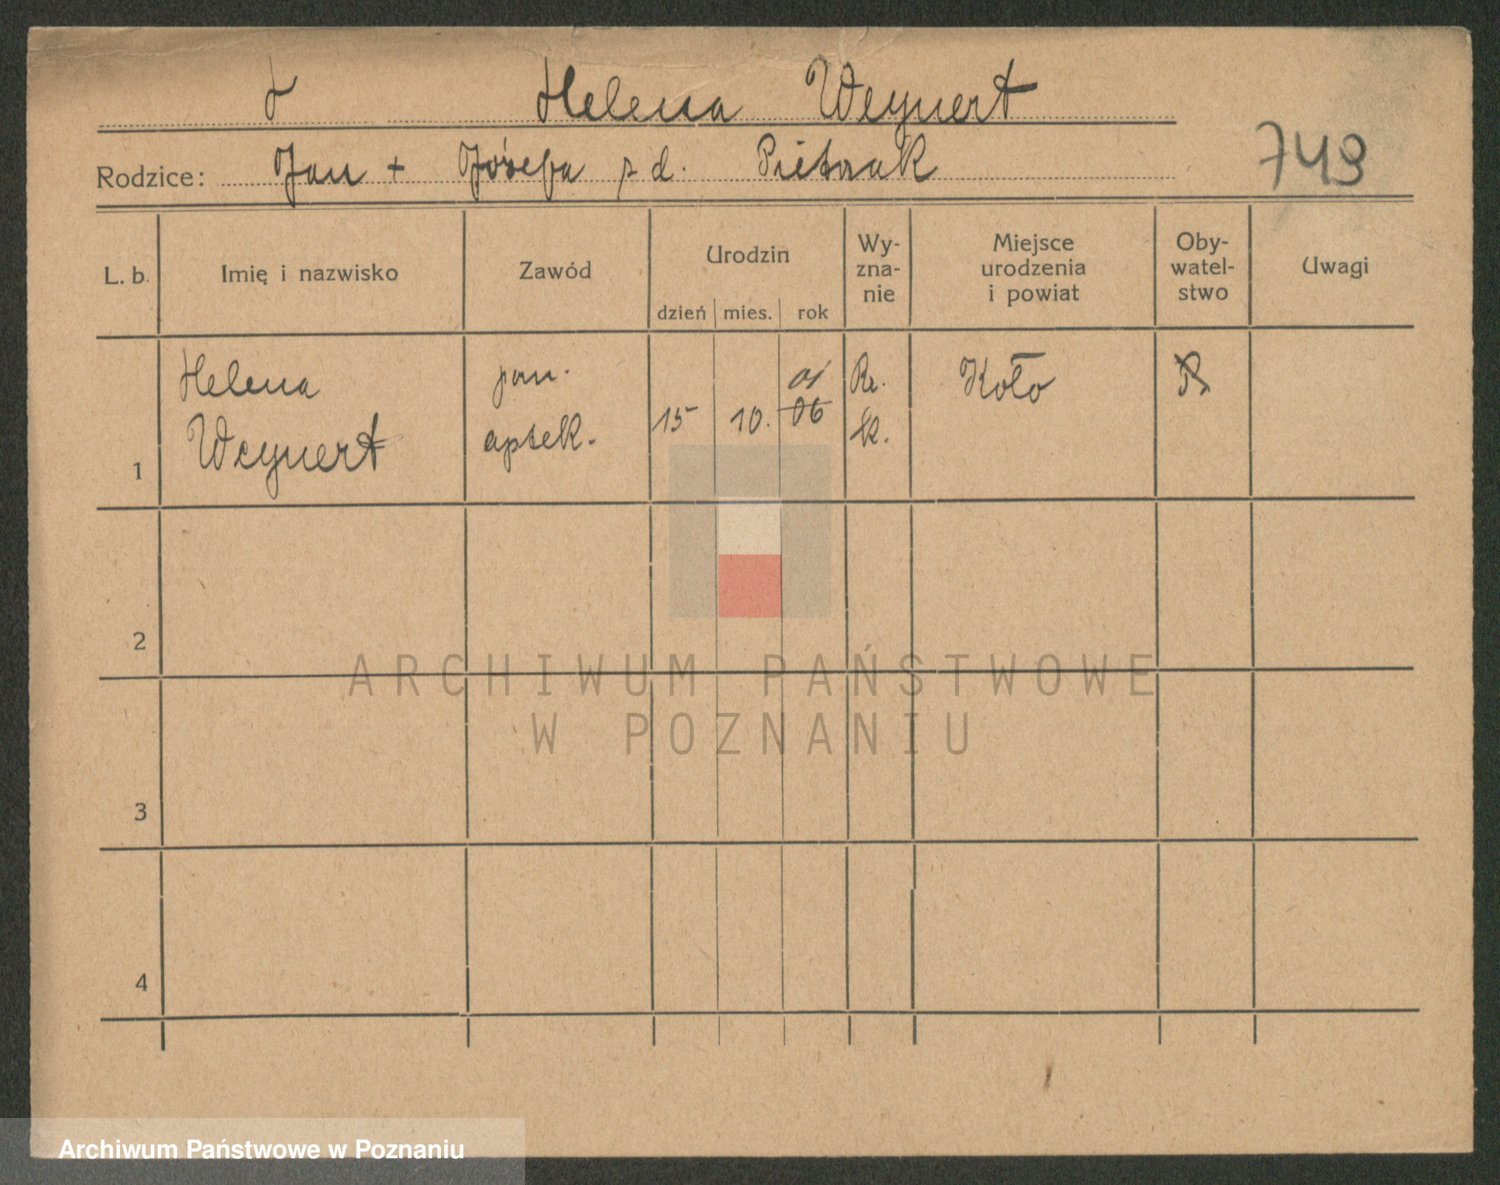 Helena Weynert
Rodzice: Jan + Józefa z d. Pietrzak
749
L. b. Imię i nazwisko Zawód Urodzin dzień mies. rok Wy-zna-nie Miejsce urodzenia i powiat Oby-watel-stwo Uwagi
Helena pan. 01 Rz. Koło P
1 Weynert aptek. 15 10. 06 k.
2
ARCHIWUM PAŃSTWOWE
W POZNANIU
3
4
Archiwum Państwowe w Poznaniu